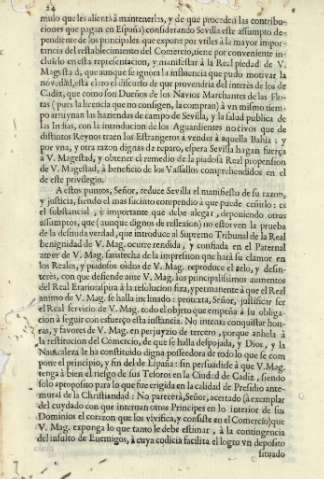 24
mulo que les alienta à mantenerlas, y de que proceden las contribu-
ciones que pagan en España) considerando Sevilla este assumpto de-
pendiente de los principales que expone por vtiles à la mayor impor-
tancia del restablecimiento del Comercio, tiene por conveniente in-
cluirlo en esta representacion, y manifestar à la Real piedad de V.
Magestad, que aunque se ignora la influencia que pudo motivar la
novedad, està claro el discurso de que provendria del interès de los de
Cadiz, que como son Dueños de los Navios Marchantes de las Flo-
tas (pues la licencia que no consiguen, la compran) à vn mismo tiem-
po arruynan las haziendas de campo de Sevilla, y la salud publica de
las Indias, con la introducion de los Aguardientes nocivos que de
distintos Reynos traen los Estrangeros à vender à aquella Bahia: y
por vna, y otra razon dignas de reparo, espera Sevilla hagan fuerça
à V. Magestad, y obtener el remedio de la piadosa Real propension
de V. Magestad, à beneficio de los Vassallos comprehendidos en el
de este privilegio.
A estos puntos, Señor, reduce Sevilla el manifiesto de su razon,
y justicia, siendo el mas sucinto compendio à que puede ceñirlo: es
el substancial, è importante que debe alegar, deponiendo otros
assumptos, que (aunque dignos de reflexion) no estorven la prueba
de la desnuda verdad, que introduce al Supremo Tribunal de la Real
benignidad de V. Mag. ocurre rendida, y confiada en el Paternal
amor de V. Mag. satisfecha de la impression que harà su clamor en
los Reales, y piadosos oidos de V. Mag. reproduce el zelo, y desin-
terès, con que defiende ante V. Mag. los principalissimos aumentos
del Real Erario: aspira à la resolucion fixa, y permanente à que el Real
animo de V. Mag. se halla inclinado: protexta, Señor, justificar ser
el Real servicio de V. Mag. todo el objeto que empeña à su obliga-
cion à seguir con esfuerço esta instancia. No intenta conquistar hon-
ras, y favores de V. Mag. en perjuyzio de tercero, porque anhela à
la restitucion del Comercio, de que se halla despojada, y Dios, y la
Naturaleza la ha constituido digna posseedora de todo lo que se com
pone el principio, y fin del de España: sin persuadirse à que V. Mag.
tenga à bien el riesgo de sus Tesoros en la Ciudad de Cadiz, siendo
solo aproposito para lo que fue erigida en la calidad de Presidio ante-
mural de la Christiandad: No parecerà, Señor, acertado (à exemplar
del cuydado con que internan otros Principes en lo interior de sus
Dominios el corazon que los vivifica, y consiste en el Comercio) que
V. Mag. exponga lo que tanto le debe estimar, à la contingencia
del insulto de Enemigos, à cuya codicia facilita el logro vn deposito
situado